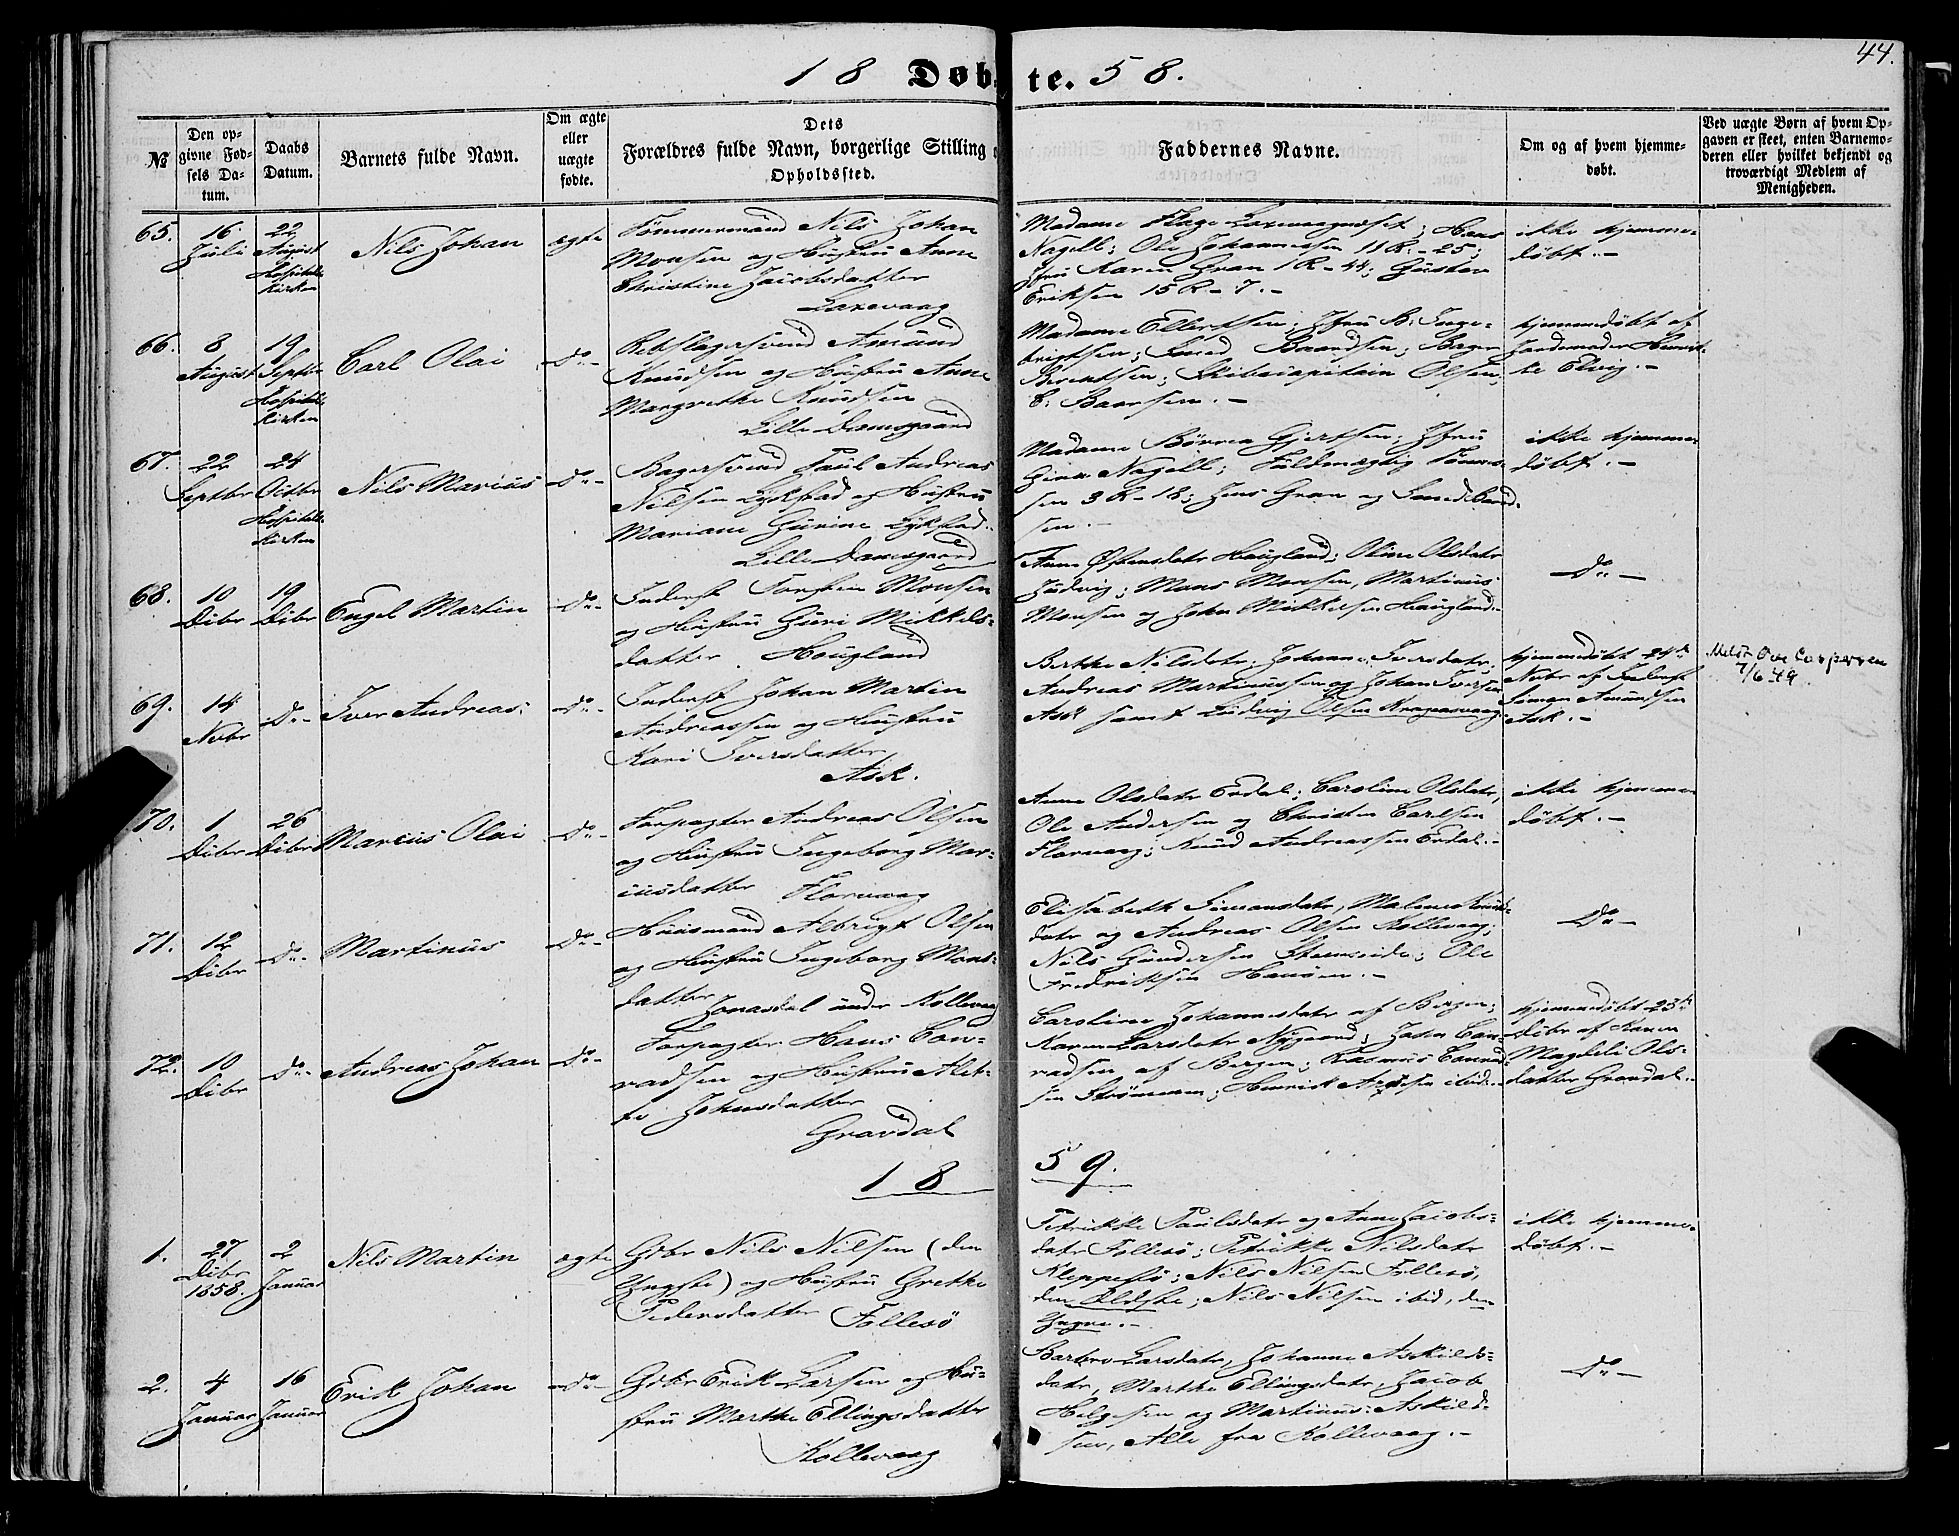 44.
18 Døbte. 58.
№
Den opgivne Fødsels Datum.
Daabs Datum.
Barnets fulde Navn.
Om ægte eller uægte fødte.
Dets Forældres fulde Navn, borgerlige Stilling o Opholdssted.
Faddernes Navne.
Om og af hvem hjemmedøbt.
Ved uægte Børn af hvem Opgaven er skeet, enten Barnemoderen eller hvilket bekjendt og troværdigt Medlem af Menigheden.
65.
16 Juli
22 August Hospitals Kirken
Nils Johan
ægte
Tømmermand Nils Johan
Monsen og Hustru Anne
Christine Jacobsdatter
Laxevaag
Madame Flage Laxevaagneset; Hans
Nagell; Ole Johannessen 11 R.- 25;
Jfru Karen Gran 1 R - 44; Gustav
Eriksen 15 R - 7. -
ikke hjemme-
døbt. -
66.
8 August
19 Septbr Hospitals Kirken
Carl Olai
Do -
Rebslagersvend Amund
Knudsen og Hustru Anne
Margrethe Knudsen
Lille Damsgaard
Madame Ellertsen; Jfru B. Inge-
brigtsen; Smed Baardsen; Bager
Berentsen; Skibscapitain Olsen,
C. Baarsen. -
hjemmedøbt af
Jordemoder Henrik-
ke Elvig. -
67.
22 Septbr
24 Octbr Hospitals Kirken
Nils Marius
Do -
Bagersvend Paul Andreas
Nilsen Lykstad og Hustru
Mariane Gurine Lykstad.
Lille Damsgaard
Madame Børrea Gjertsen; Jfru
Gina Nagell; Fuldmægtig Tønnes-
sen 3 R - 18; Jens Gran og Smed Baard-
sen. -
ikke hjemme-
døbt. -
68.
10 Dcbr
19 Dcbr
Engel Martin
Do -
Inderst Torsten Monsen
og Hustru Guri Mikkels-
datter. Hougland
Anne Østensdatr Haugland; Oline Olsdatr
Ludvig; Mons Monsen, Martinus
Monsen og John Mikkelsen Haugland. -
Do -
69.
14 Nvbr
Do -
Iver Andreas
Do -
Inderst Johan Martin
Andreassen og Hustru
Kari Iversdatter
Ask.
Berthe Nilsdatr, Johanne Iversdatr,
Andreas Martinussen og Johan Iversen
Ask samt Ludvig Olsen Kragasvaag.
hjemmedøbt 24de
Nvbr af Inderst
Simon Amundsen
Ask. -
Meldt Ove Caspersen
7/6 49
70.
1 Dcbr
26 Dcbr
Marius Olai
Do -
Forpagter Andreas Olsen
og Hustru Ingeborg Mar-
iusdatter Florvaag
Anne Olsdatr Erdal; Caroline Olsdatr,
Ole Andersen og Christen Carlsen
Florvaag; Knud Andreassen Erdal. -
ikke hjemme-
døbt. -
71.
12 Dcbr
Do -
Martinus
Do -
Huusmand Albrigt Olsen
og Hustru Ingeborg Mons-
datter Jonasdal under Kollevaag
Elisabeth Simonsdatr, Malene Knuds-
datr og Andreas Olsen Kollevaag;
Nils Gundersen Strømsnide; Ole
Fredriksen Hanøen. -
Do -
72.
10 Dcbr
Do -
Andreas Johan
Do -
Forpagter Hans Con-
radsen og Hustru Alet-
te Johnsdatter
Gravdal
Caroline Johannesdatr af Bergen;
Karen Larsdatr Nygaard; John Con-
radsen af Bergen; Rasmus Conrad-
sen Strømmen; Henrik Arnesen ibid. -
hjemmedøbt 23de
Dcbr af Karen
Magdeli Ols-
datter Gravdal. -
18 59.
1.
27 Dcbr 1858.
2 Januar
Nils Martin
ægte
Gdbr Nils Nilsen (den
Yngste) og Hustru Grethe
Pedersdatter Follesø
Petrikke Paulsdatr og Anne Jacobs-
datr Follesø; Petrikke Nilsdatr
Kleppestø; Nils Nilsen Follesø,
den Ældste; Nils Nilsen ibid, den
Yngre. -
ikke hjemme-
døbt. -
2.
4 Januar
16 Januar
Erik Johan
Do -
Gdbr Erik Larsen og Hu-
stru Marthe Ellingsdatter
Kollevaag
Barbro Larsdatr, Johanne Askilds-
datr, Marthe Ellingsdatr, Jacob
Helgesen og Martinus Askild-
sen, Alle fra Kollevaag. -
Do -